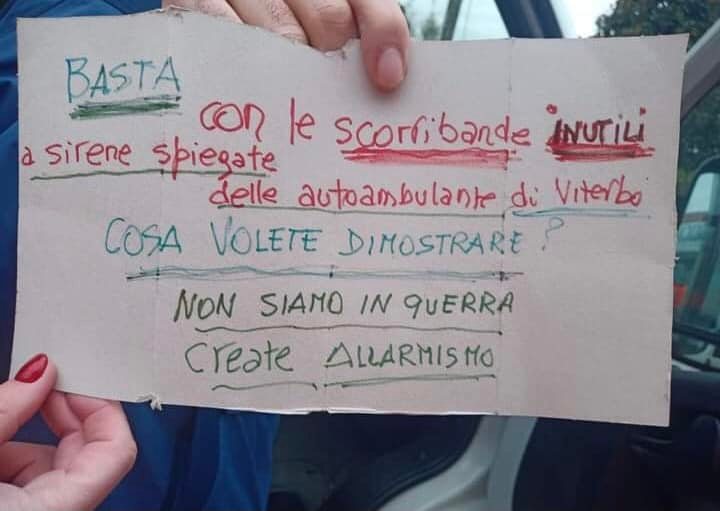 BASTA
con le scorribande INUTILI
a sirene spiegate
delle autoambulante di Viterbo
COSA VOLETE DIMOSTRARE?
NON SIAMO IN GUERRA
Create ALLARMISMO